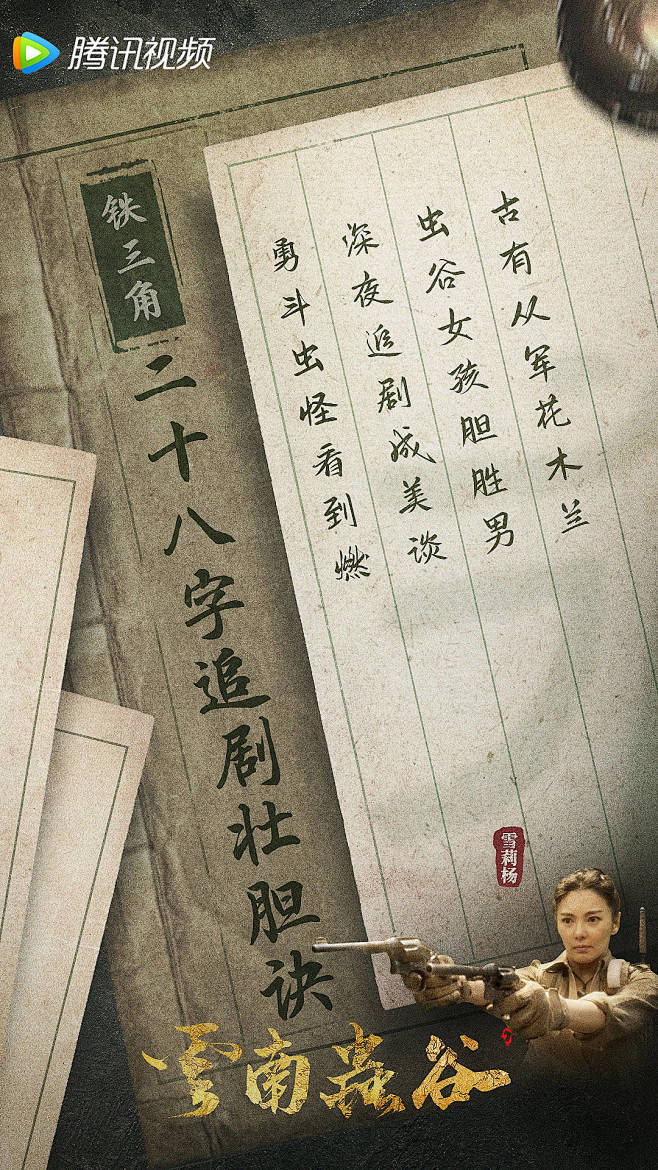 腾讯视频
铁三角
二十八字追剧壮胆诀
古有从军花木兰
虫谷女孩胆胜男
深夜追剧成美谈
勇斗虫怪看到燃
雪莉杨
雲南蟲谷